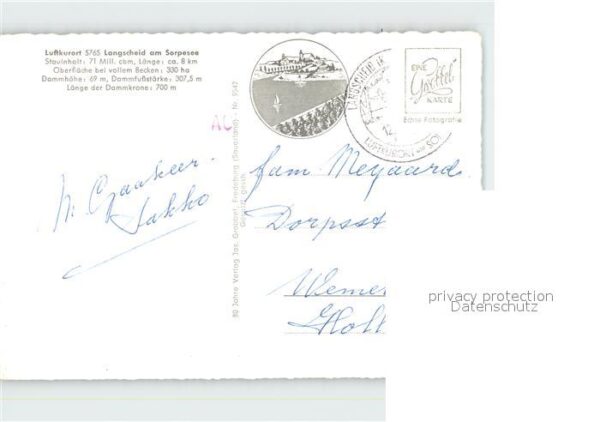 Luftkurort 5765 Langscheid am Sorpesee
Stauinhalt: 71 Mill. cbm, Länge: ca. 8 km
Oberfläche bei vollem Becken: 330 ha
Dammhöhe: 69 m, Dammfußstärke: 307,5 m
Länge der Dammkrone: 700 m
AC
50 Jahre Verlag Tax. Grobbel, Fredeburg (Sauerland) - Nr. 9542
Gesetzl. gesch.
LANGSCHEID
LUFTKURORT am SOR
EINE
Grobbel
KARTE
Echte Fotografie
Fam Meyaard
Dorpsst
Wemel
Holl
Jakko
privacy protection
Datenschutz